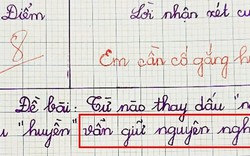 Điểm Lời nhận xét cu
8 Em cần cố gắng h
Đề bài: Từ nào thay dấu "n
u "huyền" vẫn giữ nguyên ngh